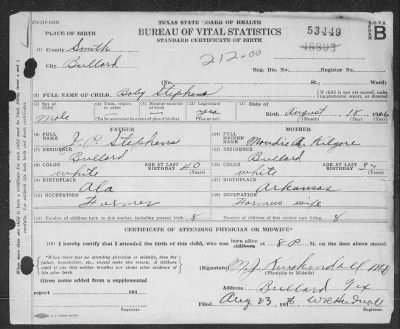 TEXAS STATE BOARD OF HEALTH
BUREAU OF VITAL STATISTICS
STANDARD CERTIFICATE OF BIRTH
B
PLACE OF BIRTH
(1) County Smith
City Bullard
53449
48893
212.00
Reg. Dis. No. Register No.
(No. St. Ward)
(2) FULL NAME OF CHILD Baby Stephens
If child is not yet named, make supplemental report, as directed
Male
(3) Twin, triplet, or other
(4) Number in order of birth
(5) Legitimate yes
(6) Date of Birth August 18
(Month) (Day) (Year)
(To be answered in event of plural births)
FATHER
FULL NAME J. P. Stephens
RESIDENCE Bullard
COLOR white
AGE AT LAST BIRTHDAY 40 (Years)
BIRTHPLACE Ala
OCCUPATION Farmer
Number of children born to this mother, including present birth 8
MOTHER
FULL MAIDEN NAME Maudie A. Kilgore
RESIDENCE Bullard
COLOR white
AGE AT LAST BIRTHDAY (Years)
BIRTHPLACE Arkansas
OCCUPATION Farmers wife
Number of children of this mother now living 8
CERTIFICATE OF ATTENDING PHYSICIAN OR MIDWIFE*
I hereby certify that I attended the birth of this child, who was born alive at 8 P M, on the date above stated.
*When there was no attending physician or midwife, then the father, householder, etc., should make this return. A stillborn child is one that neither breathes nor shows other evidence of life after birth.
(Signature) M.D.
(Physician or Midwife)
Given name added from a supplemental
report 191
Bullard Tex
Filed Aug 23 191